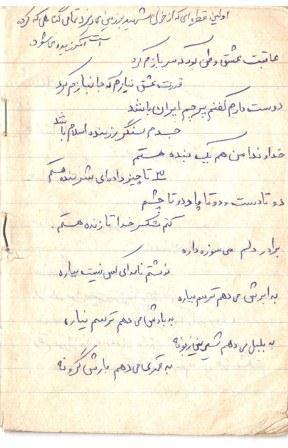 اولین قطره‌ای که از خون شهید بزمین می‌ریزد تمامی گناهانی که کرده
است آمرزیده می‌شود
عاقبت عشق وطن کوردم سرباز کرد
قدرت عشق نیازم که جانباز کرد
دوست دارم کفنم پرچم ایران باشد
جسدم سنگر رزمنده اسلام باشد
خداوندا من هم یک بنده هستم
تا چیز داده‌ای شرمنده هستم
دو تا دست و دو تا پا و دو تا چشم
کنم شکر خدا تا زنده هستم.
برادر دلم می‌سوزه داره
نوشتم نامه‌ای کس نیست بیاره
به ابرش می‌دهم ترسم بباره
به بادش می‌دهم ترسم نیاره
به بلبل می‌دهم شمعی
به قمر می‌دهم بارش گرونه